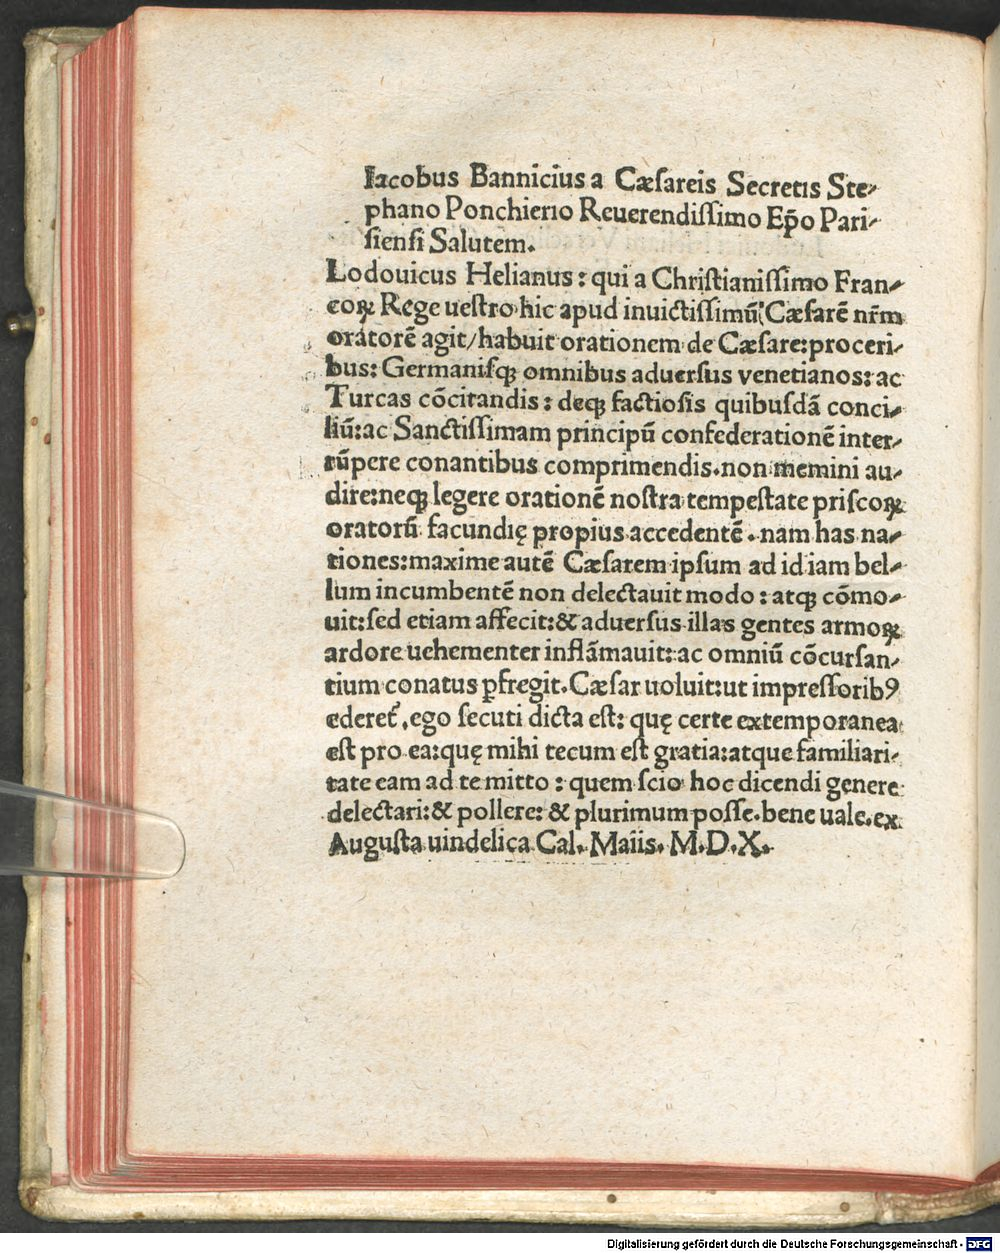 Iacobus Bannicius a Cæſareis Secretis Ste-
phano Ponchierio Reuerendiſſimo Ep̄o Pari-
ſienſi Salutem.
Lodouicus Helianus: qui a Chriſtianiſſimo Fran-
coꝝ Rege ueſtro hic apud inuictiſſimū Cæſarē nr̄m
oratorē agit/habuit orationem de Cæſare:proceri-
bus: Germaniſqꝫ omnibus aduerſus venetianos: ac
Turcas cōcitandis: deqꝫ factioſis quibuſdā conci-
liū:ac Sanctiſſimam principū confederationē inter-
rūpere conantibus comprimendis.non memini au-
dire:neqꝫ legere orationē noſtra tempeſtate priſcoꝝ
oratorū facundię propius accedentē. nam has na-
tiones:maxime autē Cæſarem ipſum ad id iam bel-
lum incumbentē non delectauit modo: atqꝫ cōmo-
uit:ſed etiam affecit:& aduerſus illas gentes armoꝝ
ardore uehementer inflāmauit:ac omniū cōcurſan-
tium conatus ꝑfregit.Cæſar uoluit:ut impreſſoribꝰ
ederet᷑, ego ſecuti dicta eſt: quę certe extemporanea
eſt pro ea:quę mihi tecum eſt gratia:atque familiari-
tate eam ad te mitto: quem ſcio hoc dicendi genere
delectari:& pollere: & plurimum poſſe.bene uale.ex
Auguſta uindelica Cal. Maiis. M.D.X.
Digitalisierung gefördert durch die Deutsche Forschungsgemeinschaft - DFG